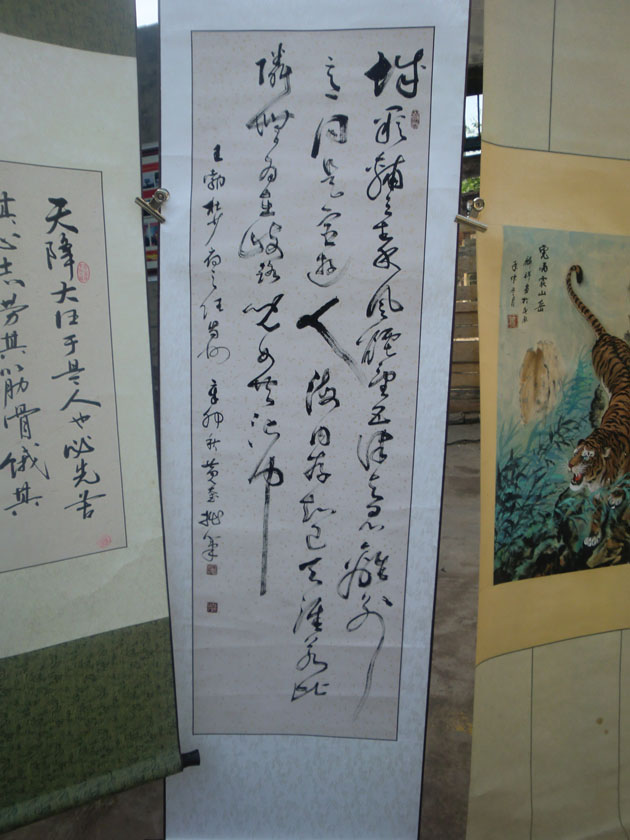 虎啸震山岳
城阙輔三秦风烟望五津与君離别
意同是宦遊人海内存知己天涯若比
隣無为在歧路児女共沾巾
王勃杜少府之任蜀州 辛卯秋黄
天降大任于是人也必先苦
其心志劳其筋骨饿其